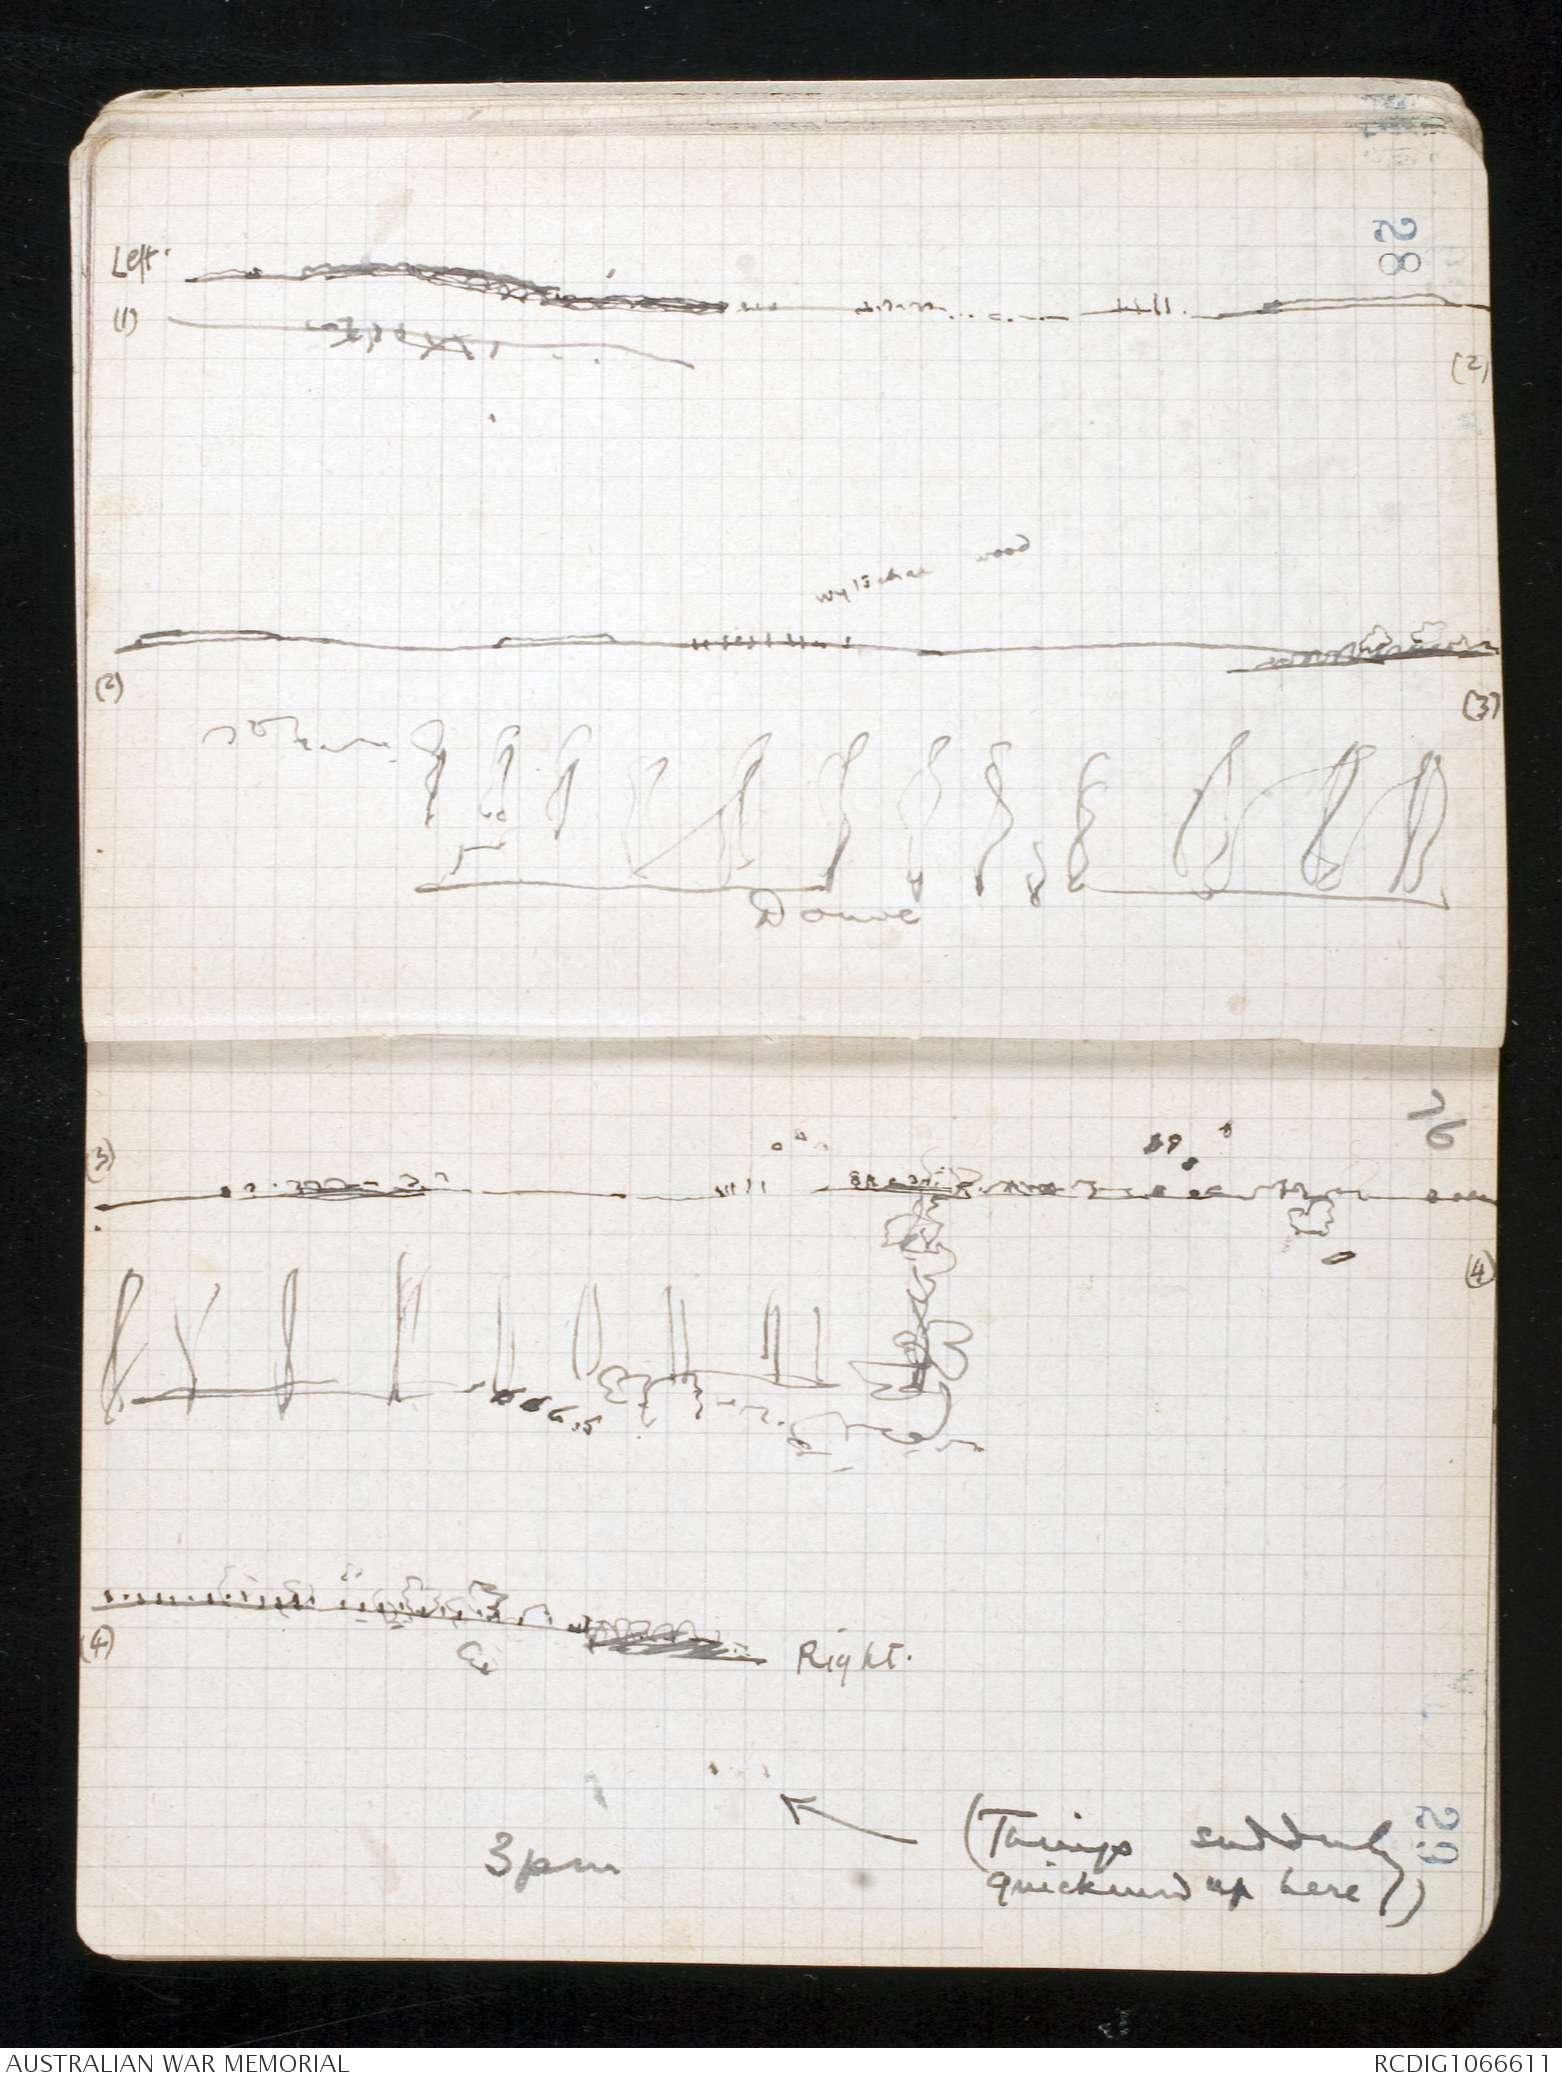 58
Left.
(1)
(2)
wytschae wood
(2)
(3)
Douve
76
(3)
(4)
(4)
Right.
3pm
(Things suddenly
quickened up here)
59
AUSTRALIAN WAR MEMORIAL
RCDIG1066611